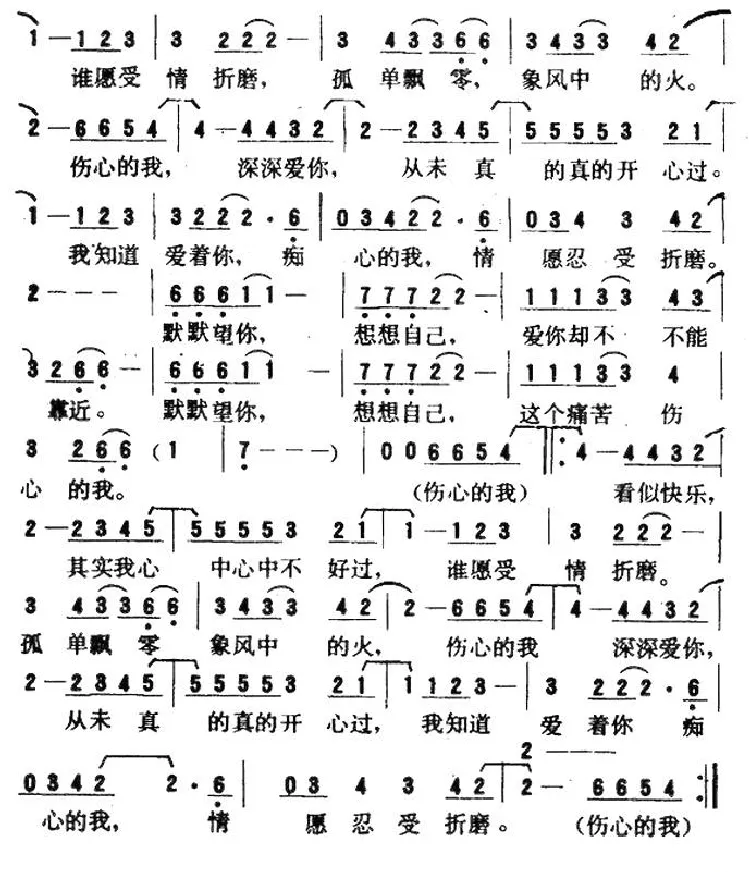 1 — 1 2 3 | 3 2 2 2 — | 3 4 3 3 6 6 | 3 4 3 3 4 2 |
谁愿受 情 折磨， 孤 单飘 零， 象风中 的火。
2 — 6 6 5 4 | 4 — 4 4 3 2 | 2 — 2 3 4 5 | 5 5 5 5 5 3 2 1 |
伤心的我， 深深爱你， 从未 真 的真的开 心过。
1 — 1 2 3 | 3 2 2 2 · 6 | 0 3 4 2 2 · 6 | 0 3 4 3 4 2 |
我知道 爱着你， 痴 心的我， 情 愿忍 受 折磨。
2 — — — | 6 6 6 1 1 — | 7 7 7 2 2 — | 1 1 1 3 3 4 3 |
默默望你， 想想自己， 爱你却不 不能
3 2 6 6 — | 6 6 6 1 1 — | 7 7 7 2 2 — | 1 1 1 3 3 4
靠近。 默默望你， 想想自己， 这个痛苦 伤
3 2 6 6 ( 1 | 7 — — — ) | 0 0 6 6 5 4 |: 4 — 4 4 3 2 |
心 的我。 (伤心的我) 看似快乐，
2 — 2 3 4 5 | 5 5 5 5 5 3 2 1 | 1 — 1 2 3 | 3 2 2 2 — |
其实我心 中心中不 好过， 谁愿受 情 折磨。
3 4 3 3 6 6 | 3 4 3 3 4 2 | 2 — 6 6 5 4 | 4 — 4 4 3 2 |
孤 单飘 零 象风中 的火， 伤心的我 深深爱你，
2 — 2 3 4 5 | 5 5 5 5 5 3 2 1 | 1 1 2 3 — | 3 2 2 2 · 6
从未 真 的真的开 心过， 我知道 爱 着你 痴
2 — — —
0 3 4 2 2 · 6 | 0 3 4 3 4 2 | 2 — 6 6 5 4 :|
心的我， 情 愿 忍 受 折磨。 (伤心的我)